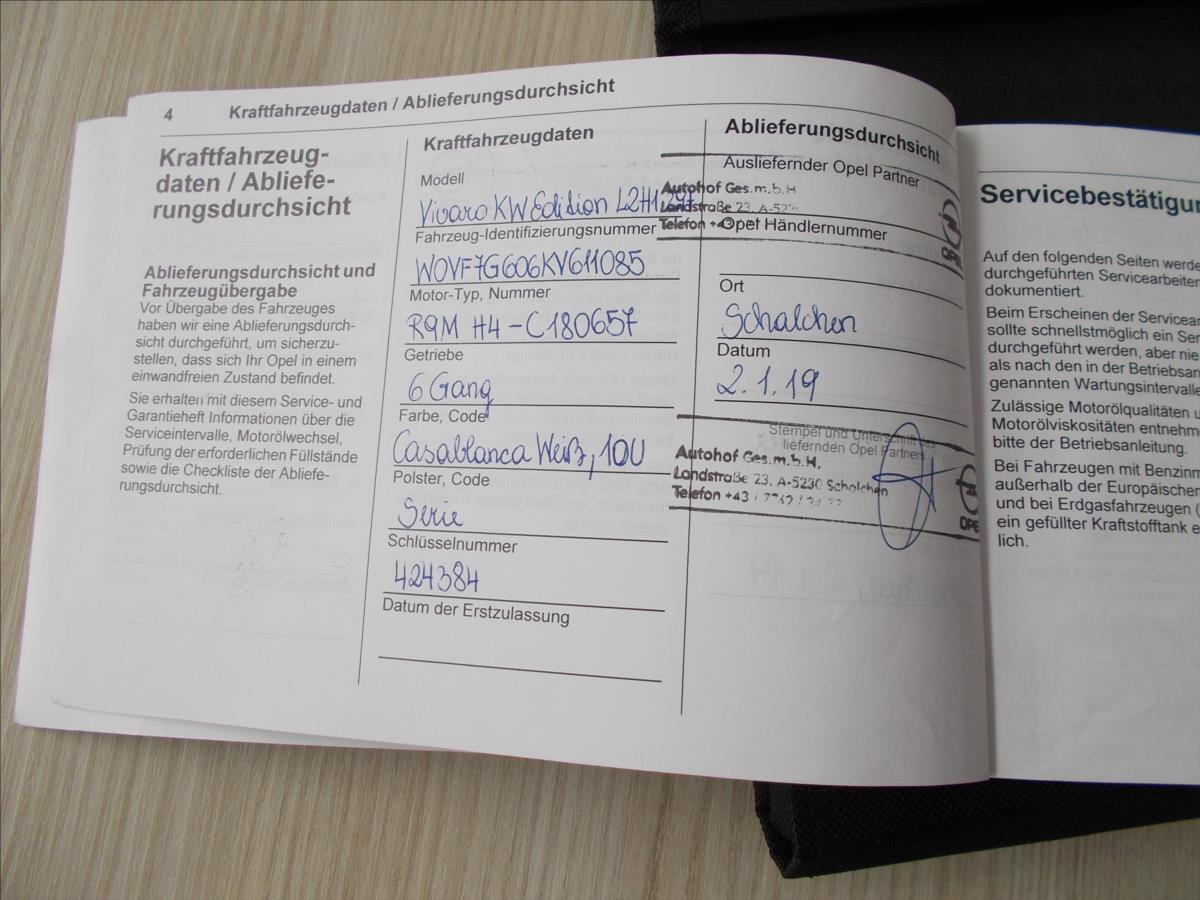 4
Kraftfahrzeugdaten / Ablieferungsdurchsicht
Kraftfahrzeug-
daten / Abliefe-
rungsdurchsicht
Ablieferungsdurchsicht und
Fahrzeugübergabe
Vor Übergabe des Fahrzeuges
haben wir eine Ablieferungsdurch-
sicht durchgeführt, um sicherzu-
stellen, dass sich Ihr Opel in einem
einwandfreien Zustand befindet.
Sie erhalten mit diesem Service- und
Garantieheft Informationen über die
Serviceintervalle, Motorölwechsel,
Prüfung der erforderlichen Füllstände
sowie die Checkliste der Abliefe-
rungsdurchsicht.
Kraftfahrzeugdaten
Modell
Vivaro KW Edition L2H1
Fahrzeug-Identifizierungsnummer
W0VF7G606KV611085
Motor-Typ, Nummer
R9M H4-C180657
Getriebe
6 Gang
Farbe, Code
Casablanca Weiß, 10U
Polster, Code
Serie
Schlüsselnummer
424384
Datum der Erstzulassung
Ablieferungsdurchsicht
Ausliefernder Opel Partner
Autohof Ges.m.b.H
Landstraße 23, A-523
Telefon +43
Opel Händlernummer
OPEL
Ort
Schalchen
Datum
2.1.19
Stempel und Unterschrift des
liefernden Opel Partners
Autohof Ges.m.b.H.
Landstraße 23, A-5230 Schalchen
Telefon +43
OPE
Servicebestätigun
Auf den folgenden Seiten werde
durchgeführten Servicearbeiten
dokumentiert.
Beim Erscheinen der Servicean
sollte schnellstmöglich ein Ser
durchgeführt werden, aber nie
als nach den in der Betriebsan
genannten Wartungsintervalle
Zulässige Motorölqualitäten u
Motorölviskositäten entnehme
bitte der Betriebsanleitung.
Bei Fahrzeugen mit Benzinm
außerhalb der Europäischen
und bei Erdgasfahrzeugen (
ein gefüllter Kraftstofftank e
lich.